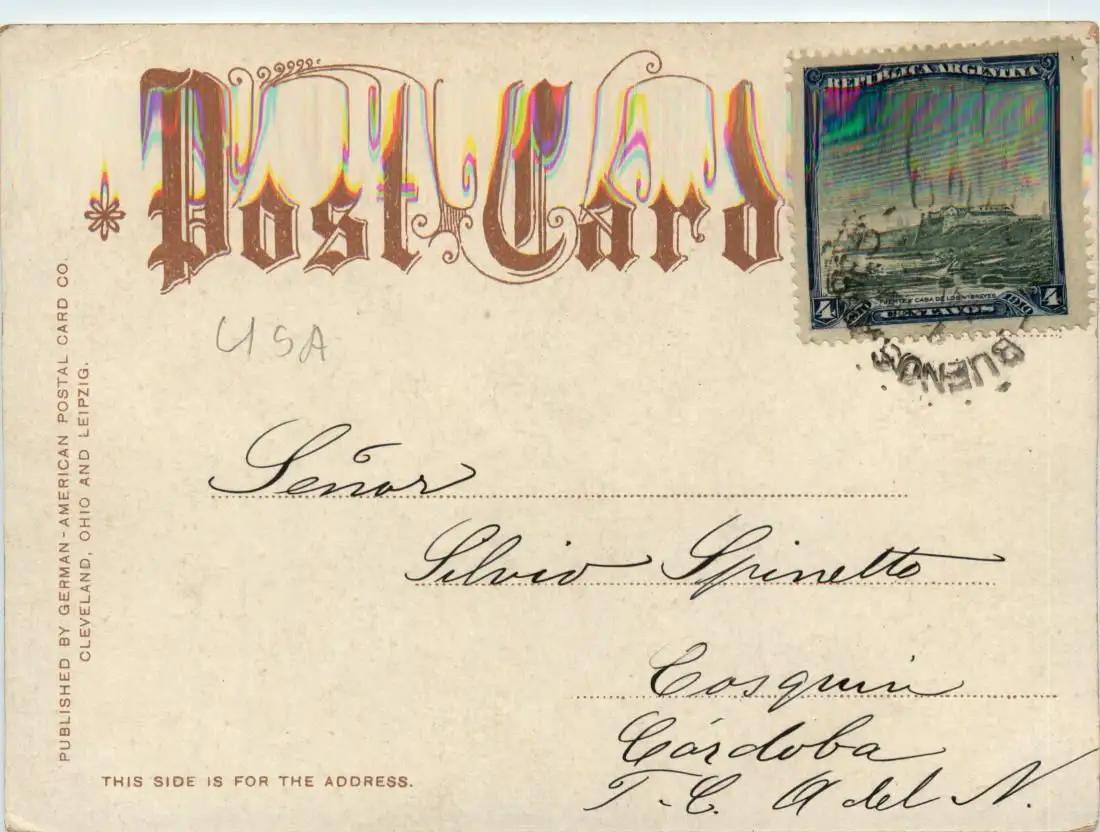 Post Card
REPUBLICA ARGENTINA
FUERTE Y CASA DE LOS VIRREYES
4 CENTAVOS 4
1810 1910
BUENOS
USA
Señor
Silvio Spinetto
Cosquin
Córdoba
F. C. A del N.
PUBLISHED BY GERMAN-AMERICAN POSTAL CARD CO.
CLEVELAND, OHIO AND LEIPZIG.
THIS SIDE IS FOR THE ADDRESS.